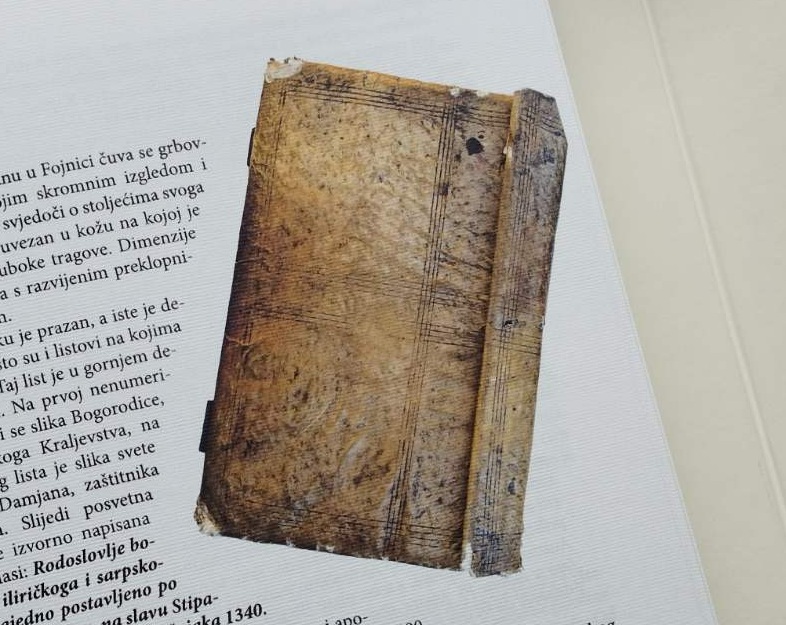 u Fojnici čuva se grbov-
skromnim izgledom i
svjedoči o stoljećima svoga
uvezan u kožu na kojoj je
tragove. Dimenzije
s razvijenim preklopni-
je prazan, a iste je de-
su i listovi na kojima
list je u gornjem de-
Na prvoj nenumeri-
se slika Bogorodice,
Kraljevstva, na
lista je slika svete
Damjana, zaštitnika
Slijedi posvetna
izvorno napisana
Rodoslovlje bo-
iliričkoga i sarpsko-
postavljeno po
na slavu Stipa-
1340.